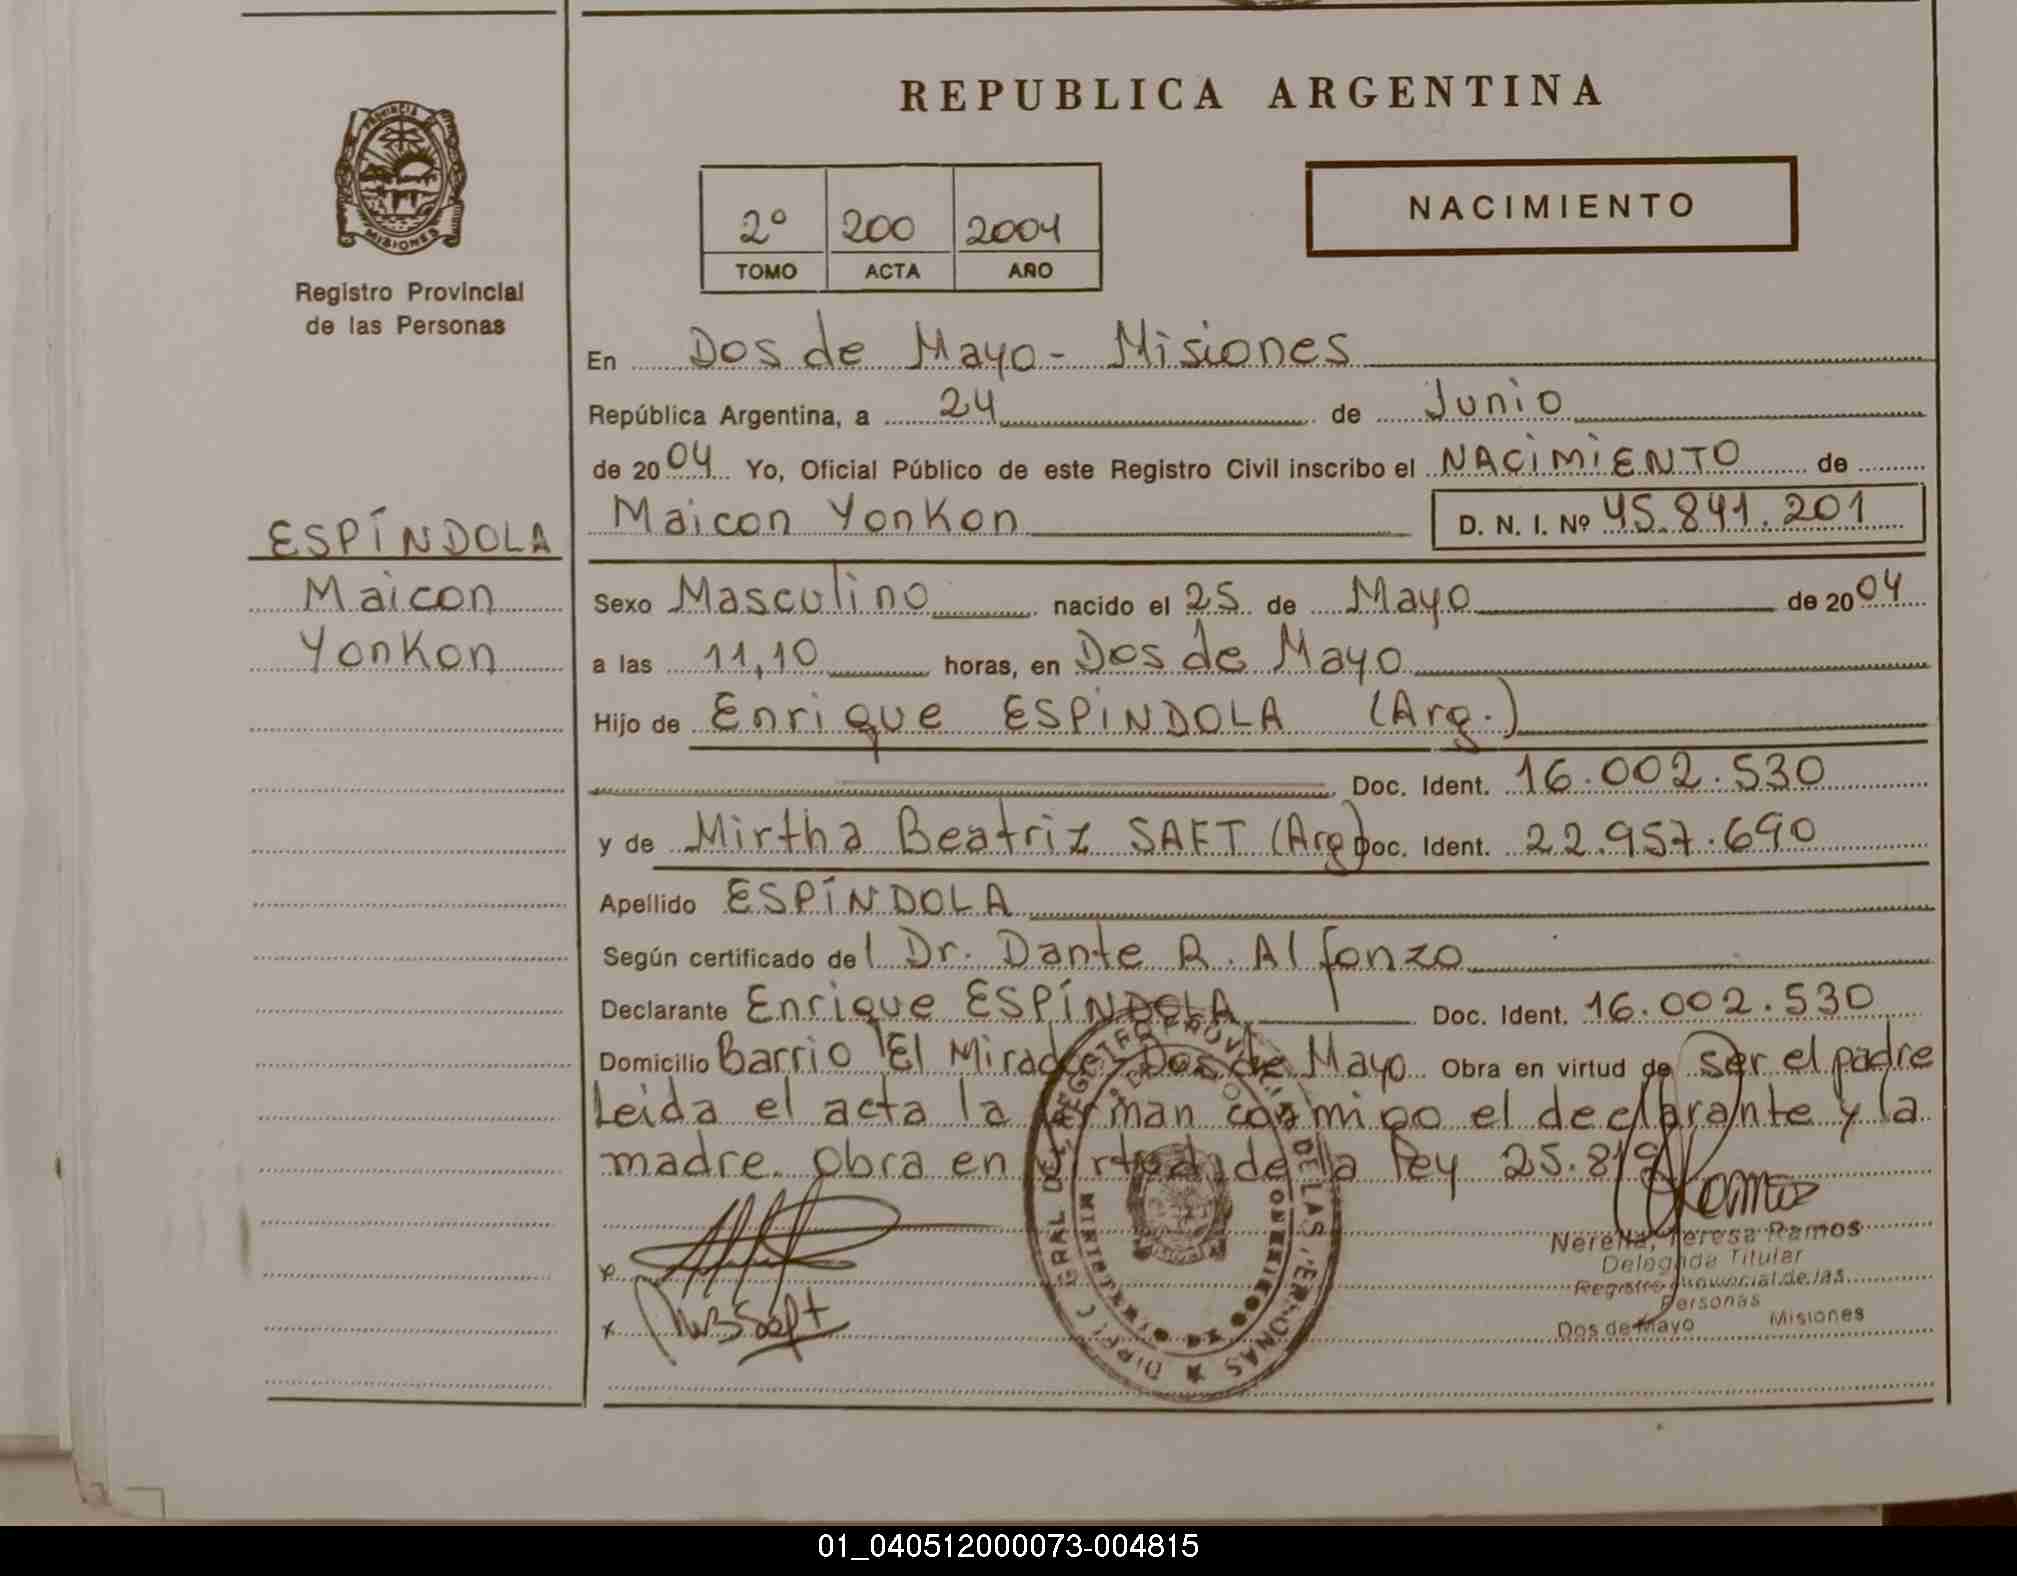 REPUBLICA ARGENTINA
PROVINCIA
MISIONES
Registro Provincial
de las Personas
2º 200 2004
TOMO ACTA AÑO
NACIMIENTO
En Dos de Mayo - Misiones
República Argentina, a 24 de Junio
de 2004 Yo, Oficial Público de este Registro Civil inscribo el NACIMIENTO de
Maicon Yonkon D. N. I. Nº 45.841.201
ESPÍNDOLA
Maicon
Yonkon
Sexo Masculino nacido el 25 de Mayo de 2004
a las 11,10 horas, en Dos de Mayo
Hijo de Enrique ESPÍNDOLA (Arg.)
Doc. Ident. 16.002.530
y de Mirtha Beatriz SAFT (Arg) Doc. Ident. 22.957.690
Apellido ESPÍNDOLA
Según certificado del Dr. Dante R. Alfonzo
Declarante Enrique ESPÍNDOLA Doc. Ident. 16.002.530
Domicilio Barrio El Mirador Dos de Mayo Obra en virtud de ser el padre
Leida el acta la firman conmigo el declarante y la
madre. Obra en virtud de la ley 25.819
Nerella, Teresa Ramos
Delegada Titular
Registro Provincial de las
Personas
Dos de Mayo Misiones
DEL REGISTRO PROVINCIAL DE LAS PERSONAS
01_040512000073-004815